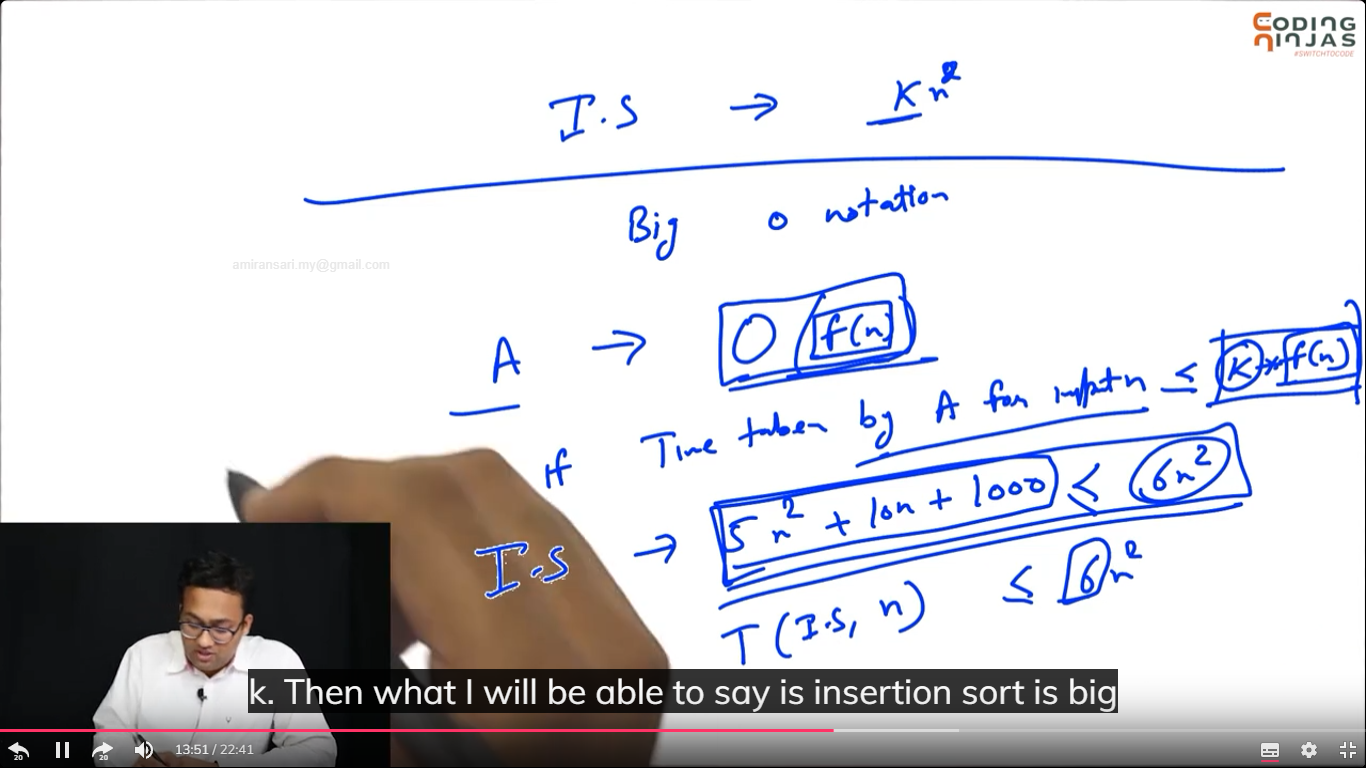 CODING
NINJAS
#SWITCHTOCODE
I.S → Kn²
Big O notation
amiransari.my@gmail.com
A → O (f(n))
If Time taken by A for input n ≤ K * f(n)
I.S → 5n² + 10n + 1000 ≤ 6n²
T (I.S, n) ≤ 6n²
k. Then what I will be able to say is insertion sort is big
20 20 13:51 / 22:41